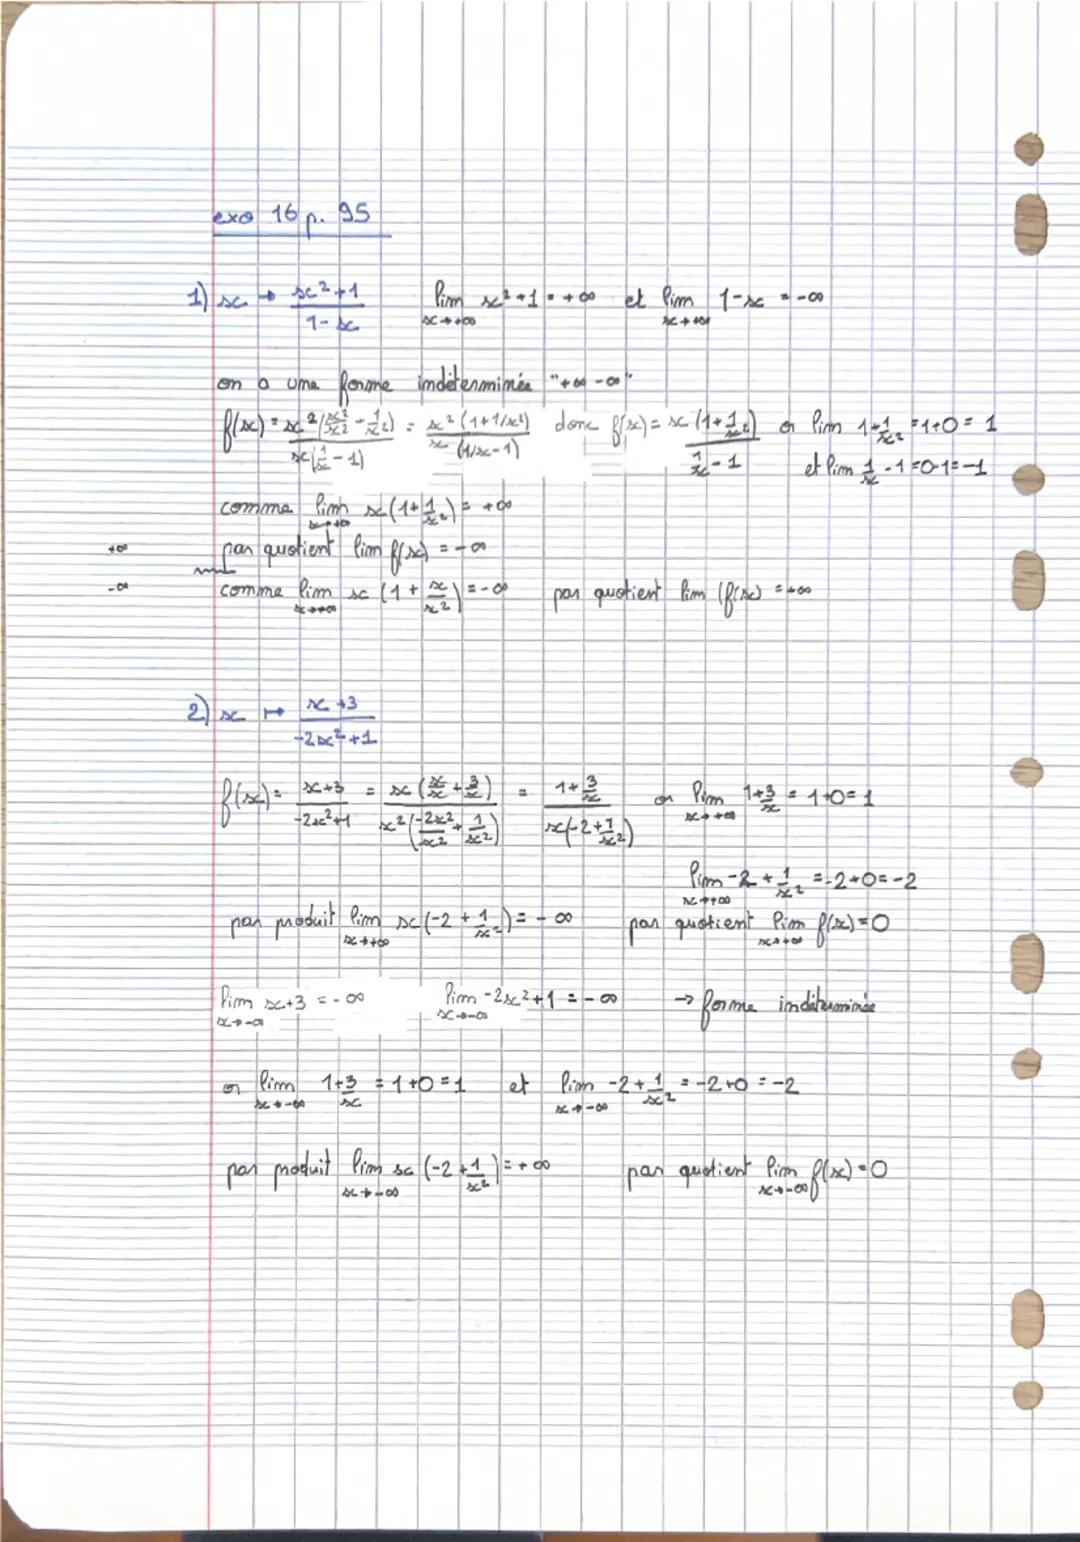 exo 16 p. 95
1) x → (x²+1)/(1-x) lim x→+∞ x²+1 = +∞ et lim x→+∞ 1-x = -∞
on a une forme indéterminée "+∞ -∞"
f(x) = x²(x²/x² - 1/x²) / x(1/x - 1) = x²(1+1/x²) / x(1/x-1) donc f(x) = x(1+1/x²) / (1/x - 1) or lim 1+1/x² = 1+0 = 1
et lim 1/x - 1 = 0-1 = -1
comme lim x→+∞ x(1+1/x²) = +∞
+∞ par quotient lim f(x) = -∞
-∞ comme lim x→+∞ x(1 + x/x²) = -∞ par quotient lim (f(x) = +∞
2) x ↦ (x+3)/(-2x²+1)
f(x) = (x+3)/(-2x²+1) = x(x/x + 3/x) / x²(-2x²/x² + 1/x²) = (1+3/x) / x(-2+1/x²) or lim x→+∞ 1+3/x = 1+0 = 1
lim x→+∞ -2 + 1/x² = -2+0 = -2
par produit lim x→+∞ x(-2 + 1/x²) = -∞ par quotient lim x→+∞ f(x) = 0
lim x→-∞ x+3 = -∞ lim x→-∞ -2x²+1 = -∞ → forme indéterminée
or lim x→-∞ 1+3/x = 1+0 = 1 et lim x→-∞ -2+1/x² = -2+0 = -2
par produit lim x→-∞ x(-2+1/x²) = +∞ par quotient lim x→-∞ f(x) = 0